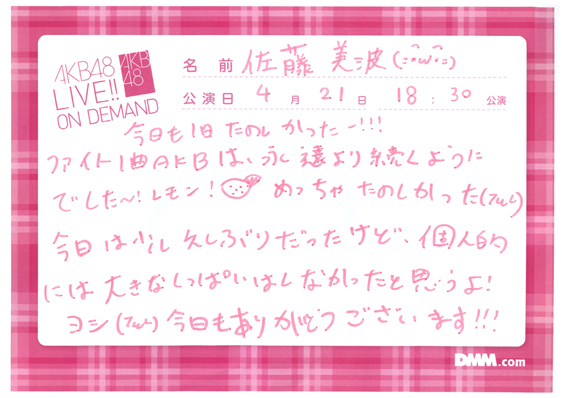 AKB48
LIVE!!
ON DEMAND
AKB
48
名 前 佐藤 美波(=^ω^=)
公演日 4 月 21 日 18 : 30 公演
今日も1日 たのしかったー!!!
ファイト1曲AKBは、永遠より続くように
でした〜!レモン! めっちゃ たのしかった(TωT)
今日は少し久しぶりだったけど、個人的
には大きなしっぱいはしなかったと思うよ!
ヨシ(TωT)今日もありがとうございます!!!
DMM.com